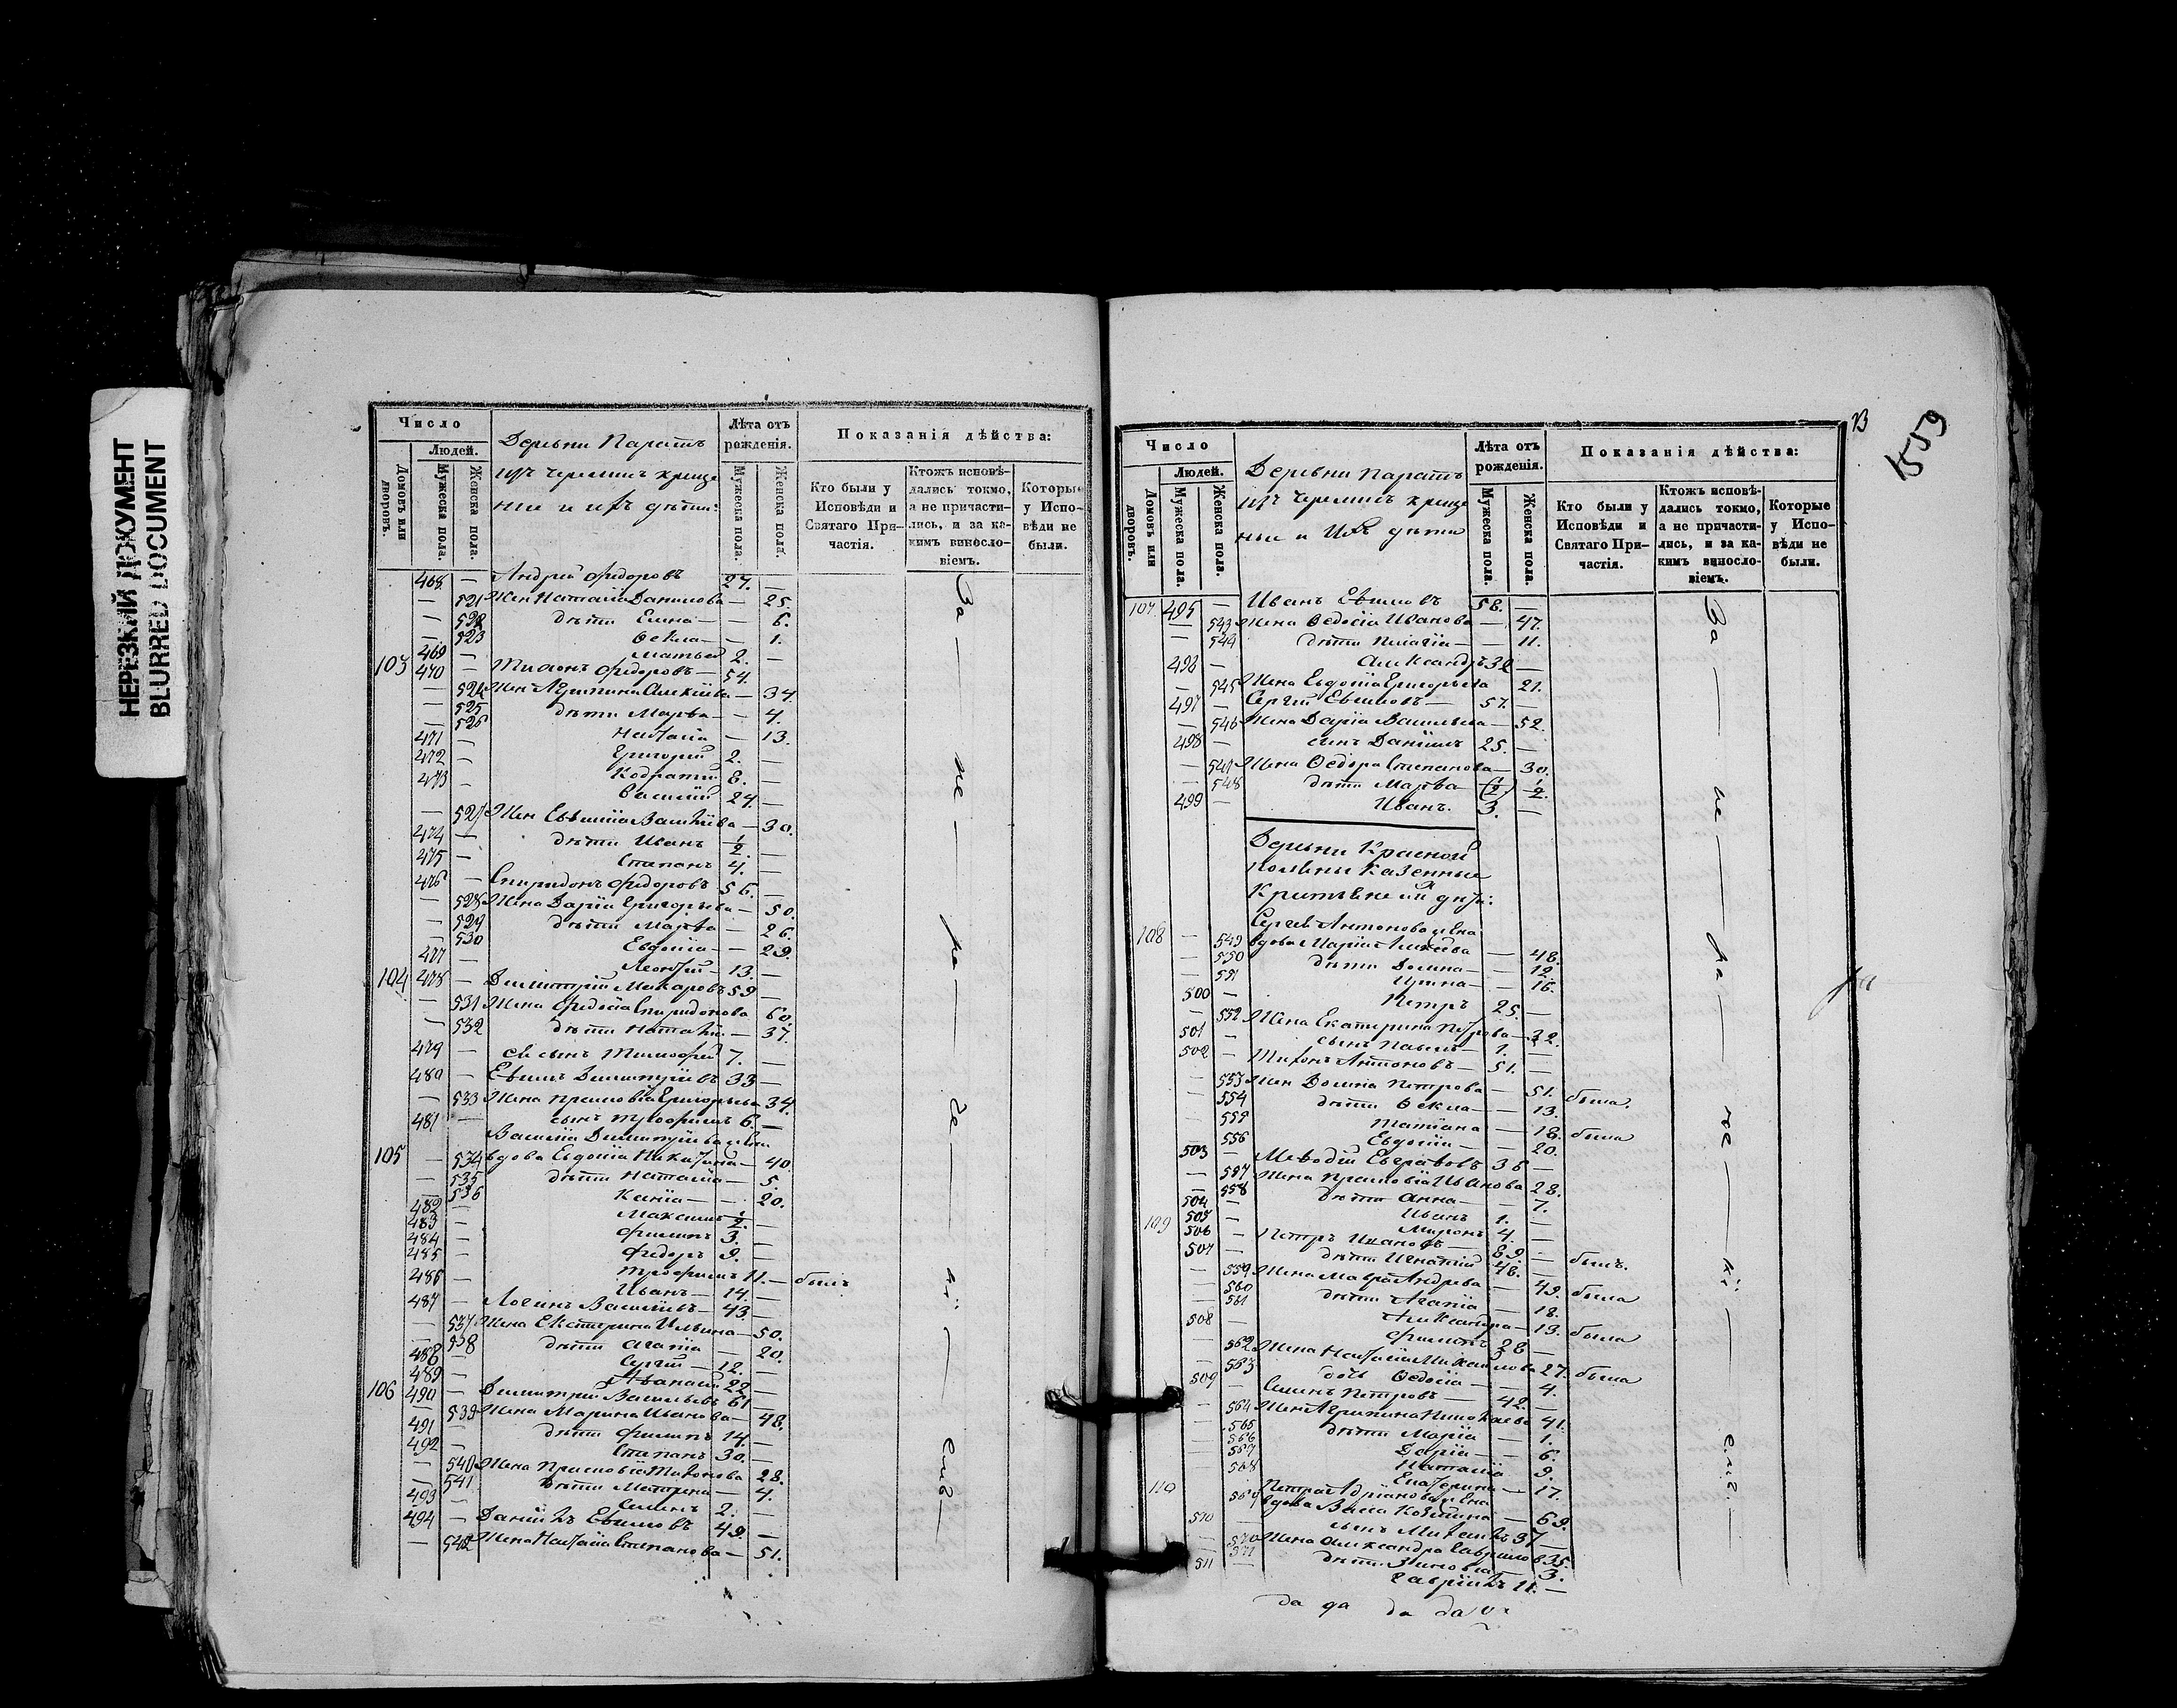 НЕРЕЗКИЙ ДОКУМЕНТ
BLURRED DOCUMENT
Число
Людей.
Домовъ или дворовъ.
Мужеска пола.
Женска пола.
Деревни Паратъ
изъ черемисъ креще
ные и ихъ дѣти:
Лѣта отъ рожденія.
Мужеска пола.
Женска пола.
Показанія дѣйства:
Кто были у Исповѣди и Святаго Причастія.
Ктожъ исповѣдались токмо, а не причастились, и за какимъ винословіемъ.
Которые у Исповѣди не были.
468 — Андрей Федоровъ 27. —
— 521 Жен Наталia Данилова — 25.
— 522 дѣти Елена — — 6.
— 523 Ѳекла — — 1.
469 — Матвей 2. —
103 470 — Тихонъ Федоровъ — 54.
— 524 Жен Агрипина — 34.
— 525 дѣти Марѳа — — 4.
— 526 Наталiя — 13.
471 — Григорий 2. —
472 — Кодратий 8. —
473 — Василий 24. —
— 527 Жен — 30.
474 — дѣти Иванъ 1/2. —
475 — Степанъ 4. —
476 — Спиридонъ Федоровъ 56. —
— 528 Жена Дарiя Григорьева — 50.
— 529 дѣти Марѳа — 26.
— 530 Евдокiя — — 29.
477 — Леонтий — 13. —
104 478 — Димитрiй Макаровъ 59 —
— 531 Жена Спиридонова 60.
— 532 дѣти — 37.
479 — ея сынъ Тимофей 7. —
480 — Евѳимъ Димитрiевъ 33 —
— 533 Жена Прасковiя Григорьева 34.
481 — сынъ Трофимъ 6. —
Василiя Димитрiева жена
105 — 534 вдова Евдокiя Никитина — 40.
— 535 дѣти Наталiя — 5.
— 536 Ксенiя — — 20.
482 — Максимъ 1/2. —
483 — Филипъ 3. —
484 — Федоръ 9. —
485 — Трофимъ 11. — былъ
486 — Иванъ — 14. —
487 — Логинъ Васильевъ — 43. —
— 537 Жена Екатерина Ильина — 50.
— 538 дѣти Агапiя — 20.
488 — Сергий — 12. —
489 — Аѳанасий 22 —
106 490 — Димитрий Васильевъ 61 —
— 539 Жена Марина Иванова — 48.
491 — дѣти Филипъ 14. —
492 — Степанъ 30. —
— 540 Жена Прасковiя Тихонова 28.
— 541 дѣти Матрена — 4.
493 — Семенъ 2. —
494 — Данiилъ Евѳимовъ 49. —
— 542 Жена Наталiя Степанова — 51.
За — не — ра — че — нi — емъ —
13
1559
Число
Людей.
Домовъ или дворовъ.
Мужеска пола.
Женска пола.
Деревни Паратъ
изъ черемисъ креще
ные и Ихъ дѣти
Лѣта отъ рожденія.
Мужеска пола.
Женска пола.
Показанія дѣйства:
Кто были у Исповѣди и Святаго Причастія.
Ктожъ исповѣдались токмо, а не причастились, и за какимъ винословіемъ.
Которые у Исповѣди не были.
107 495 — Иванъ Евѳимовъ 58. —
— 543 Жена Ѳедосiя Иванова — 47.
— 544 дѣти Пелагiя — — 11.
496 — Александръ 32 —
— 545 Жена Евдокiя Григорьева 21.
497 — Сергий Евѳимовъ — 57. —
— 546 Жена Дарiя Васильева — 52.
498 — сынъ Данiилъ 25. —
— 547 Жена Ѳедора Степанова — 30.
— 548 дѣти Марѳа — 1/2.
499 — Иванъ. 3. —
Деревни Красной
поляны казенные
Крестьяне ихъ дѣти:
Сергея Антонова жена
108 — 549 вдова Марiя — 48.
— 550 дѣти Домна — — 12.
— 551 Ирина — — 16.
500 — Петръ 25. —
— 552 Жена Екатерина Петрова — 32.
501 — сынъ Павелъ — 1. —
502 — Тихонъ Антоновъ — 51. —
— 553 Жен Домна Петрова — 51. была.
— 554 дѣти Ѳекла — — 13.
— 555 Татiана — 18. была
— 556 Евдокiя — — 20.
503 — Меѳодiй Евграфовъ 36 —
— 557 Жена Прасковiя Иванова 28.
— 558 дѣти Анна — — 7.
504 — Иванъ 1. —
505 — Миронъ 4. —
109 506 — Петръ Ивановъ — 89. — былъ.
507 — дѣти Игнатiй 48. —
— 559 Жена Мавра Андреева — 49. была
— 560 дѣти Агапiя — 18.
— 561 Александра — 13. была
508 — Филипъ 28 —
— 562 Жена Наталiя Михайлова 27. была
— 563 дочь Ѳедосiя — — 4.
509 — Семенъ Петровъ — 42. —
— 564 Жен Агрипина 41.
— 565 дѣти Марiя — 1.
— 566 Дарiя — — 6.
— 567 Наталiя 9.
— 568 Екатерина — 17.
110 Петра Адрiанова жена
— 569 вдова — 69.
510 — сынъ Михаилъ 37 —
— 570 Жена Александра Гаврилов 35.
— 571 дѣти 3.
511 — Гаврiилъ 11. —
За — не — ра — че — нi — емъ —